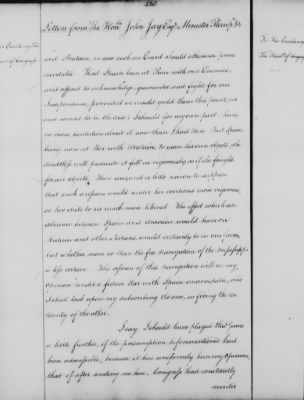 Letters from The Hon.ble John Jay Esq.r Minister Plenip.o &c
and Britain, in case such an Event should otherwise prove
inevitable. Had Spain been at Peace with our Enemies,
and offered to acknowledge, guarantee and fight for our
Independence, provided we would yield them this point, (as
once seemed to be the case) I should for my own part, have
no more hesitation about it now than I had then. But Spain
being now at War with Britain, to gain her own objects, she
doubtless will prosecute it full as vigorously as if she fought
for our objects. There was and is little reason to suppose
that such a cession would render her exertions more vigorous,
or her aids to us much more liberal. The effect which an
alliance between Spain and America would have on
Britain and other nations, would certainly be in our favor,
but whether more so than the free navigation of the Mississippi
is less certain. The cession of this navigation will in my
opinion render a future War with Spain unavoidable, and
I shall look upon my subscribing the one, as fixing the cer-
tainty of the other.
I say I should have played this Game
a little further, if the presumption beforementioned had
been admissible, because it has uniformly been my opinion,
that if after sending me here, Congress had constantly